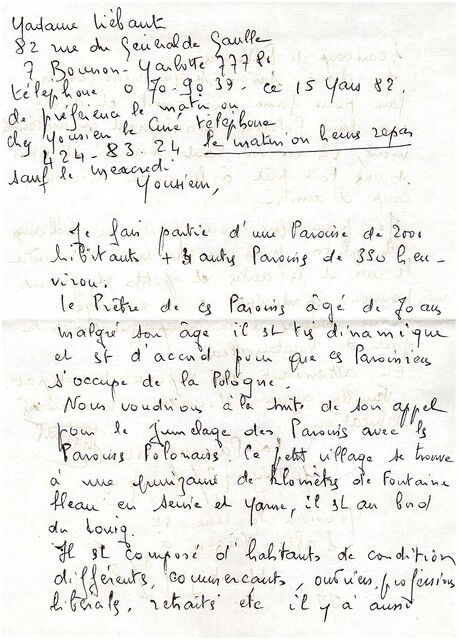 Madame Liébaut
82 rue du Général de Gaulle
7 Bourron-Marlotte 777 81
téléphone 0 70-90 39- ce 15 Mars 82.
de préférence le matin ou
chez Monsieur le Curé téléphone
424-83-24 le matin ou heures repas
sauf le mercredi
Monsieur,
Je fais partie d'une Paroisse de 2000
habitants + 3 autres Paroisses de 350 h en-
viron.
Le Prêtre de ces Paroisses âgé de 70 ans
malgré son âge il est très dinamique
et est d'accord pour que ces Paroissiens
s'occupe de la Pologne.
Nous voudrions à la suite de son appel
pour le Jumelage des Paroisses avec les
Paroisses Polonaises. Ce petit village se trouve
à une quinzaine de kilomètres de Fontaine
bleau en Seine et Marne, il est au bord
du Loing
Il est composé d'habitants de condition
différents, commercants, ouvriers, professions
libérales, retraités etc il y à aussi